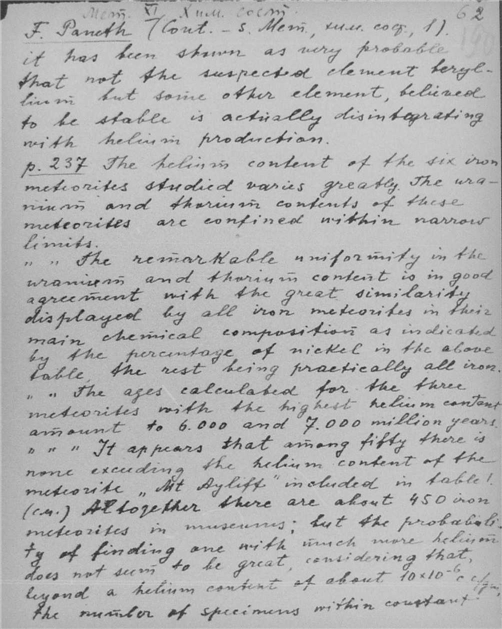 Мет. XI Хим. сост.
62
F. Paneth (Cont. - s. Мет, хим. сост., 1).
it has been shown as very probable
that not the suspected element beryl-
lium but some other element, believed
to be stable is actually disintegrating
with helium production.
p. 237 The helium content of the six iron
meteorites studied varies greatly. The ura-
nium and thorium contents of these
meteorites are confined within narrow
limits.
" " The remarkable uniformity in the
uranium and thorium content is in good
agreement with the great similarity
displayed by all iron meteorites in their
main chemical composition as indicated
by the percentage of nickel in the above
table, the rest being practically all iron.
" " The ages calculated for the three
meteorites with the highest helium content
amount to 6.000 and 7.000 million years.
" " " It appears that among fifty there is
none exceuding the helium content of the
meteorite „Mt Ayliff" included in table 1.
(см.) Altogether there are about 450 iron
meteorites in museums; but the probabili-
ty of finding one with much more helium
does not seem to be great, considering that,
beyond a helium content of about 10×10⁻⁶ cc/gm,
the number of specimens within constant